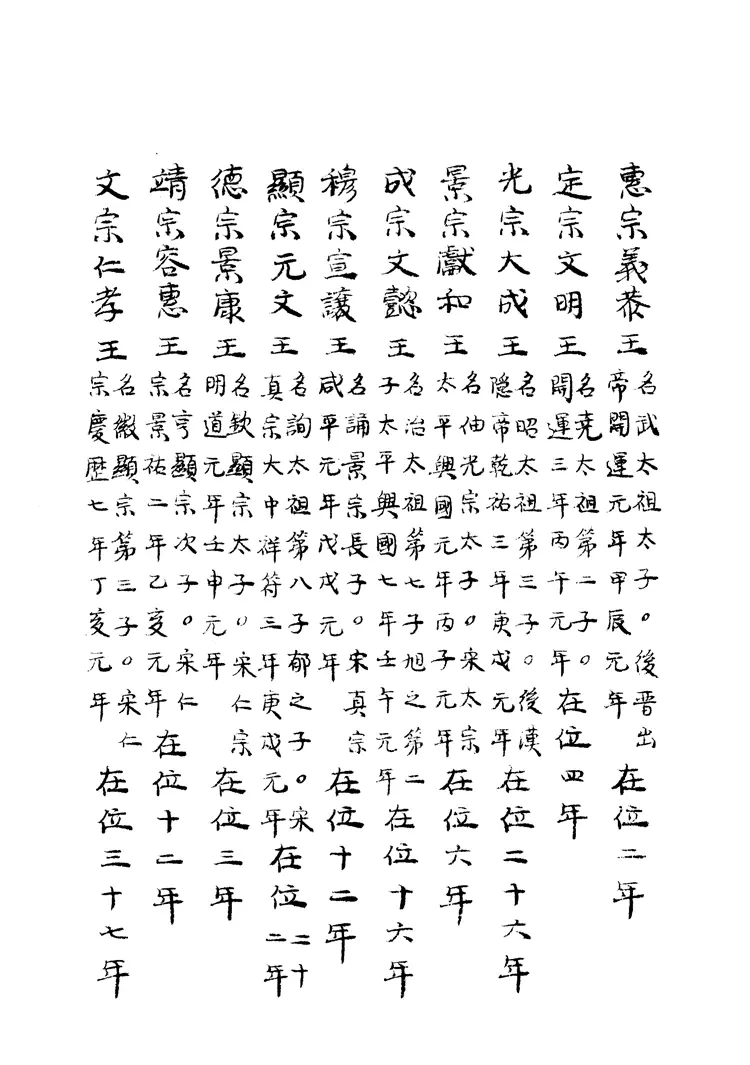 惠宗義恭王 名武太祖太子。後晋出帝開運元年甲辰元年 在位二年
定宗文明王 名堯太祖第二子。開運三年丙午元年 在位四年
光宗大成王 名昭太祖第三子。後漢隠帝乾祐三年庚戌元年 在位二十六年
景宗獻和王 名伷光宗太子。宋太宗太平興國元年丙子元年 在位六年
成宗文懿王 名治太祖第七子旭之第二子太平興國七年壬午元年 在位十六年
穆宗宣讓王 名誦景宗長子。宋真宗咸平元年戊戌元年 在位十二年
顯宗元文王 名詢太祖第八子郁之子。宋真宗大中祥符三年庚戌元年 在位二十二年
德宗景康王 名欽顯宗太子。宋仁宗明道元年壬申元年 在位三年
靖宗容惠王 名亨顯宗次子。宋仁宗景祐二年乙亥元年 在位十二年
文宗仁孝王 名徽顯宗第三子。宋仁宗慶歴七年丁亥元年 在位三十七年